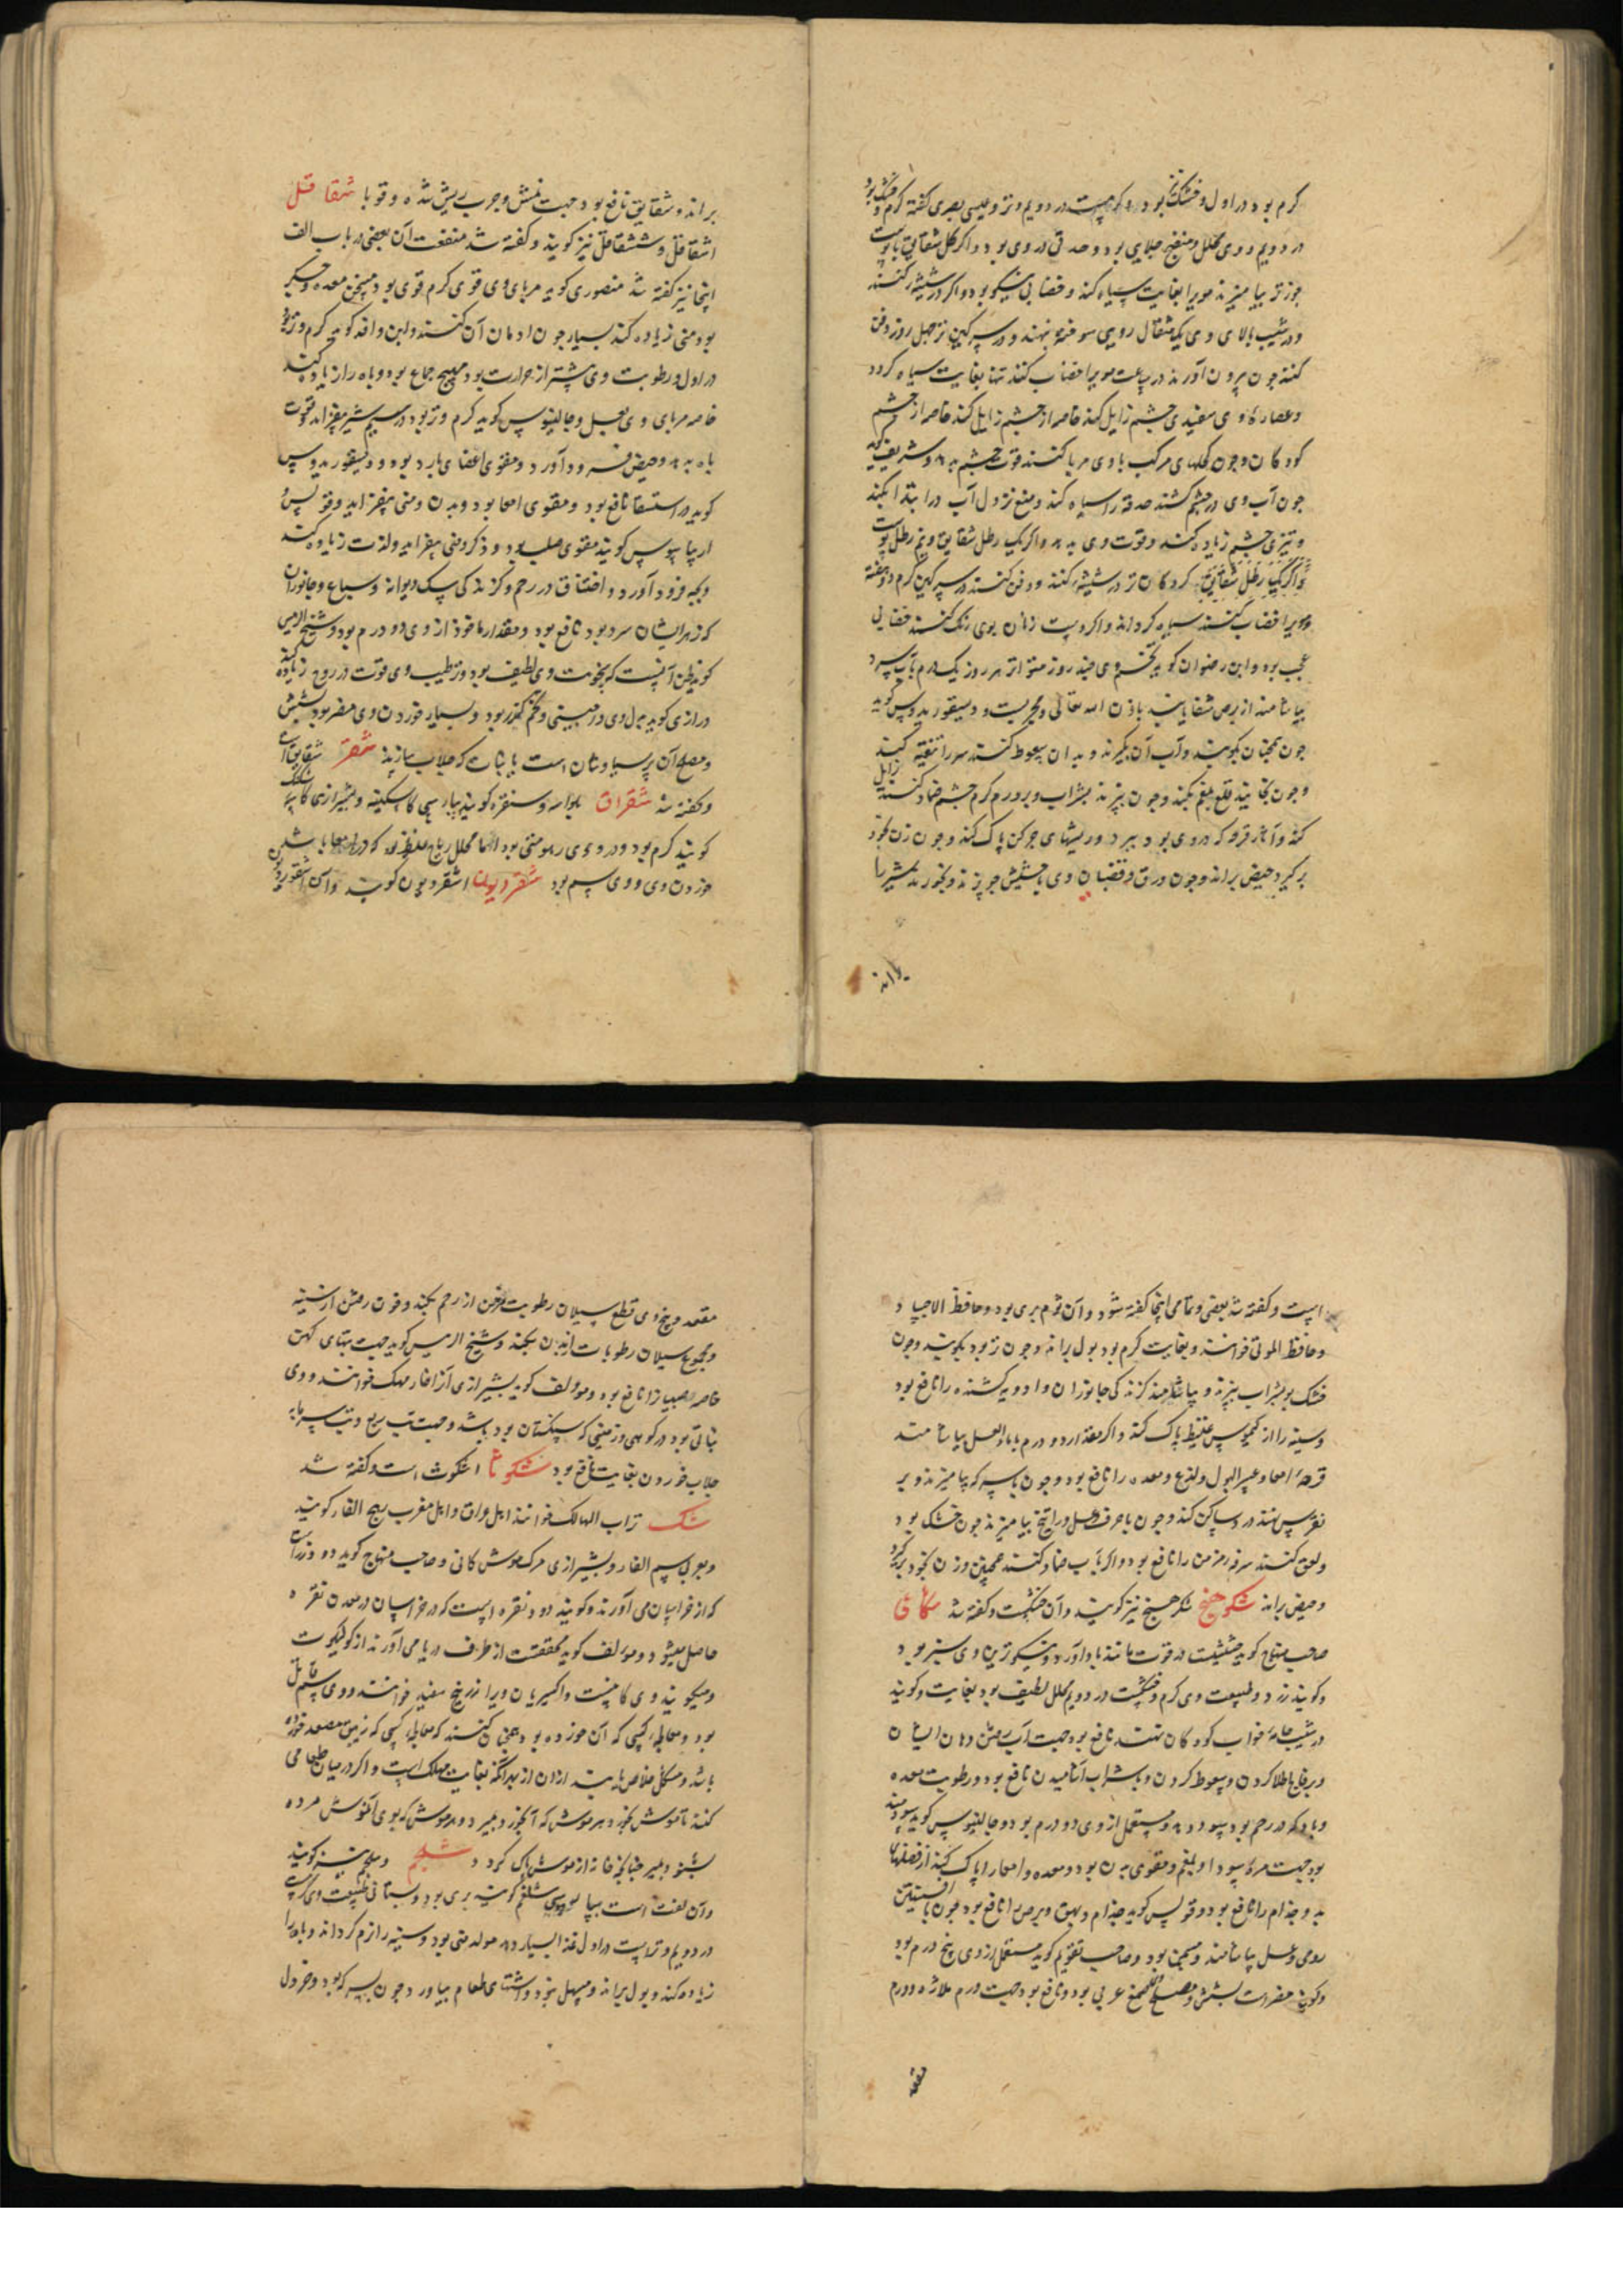 کرم بود در اول و خشک بود و کویند در دویم و تر و عیسی بصری کفته کرم و خشک بود
در دویم و وی محلل و منضج و جلایی بود و حدتی در وی بود و اکر کل شقایق با پوست
جوز تر بیامیزند مویرا بغایت سیاه کند و خضابی نیکو بود و اکر در شیشه کنند
و در شیب بالای وی یک مثقال رویی سوخته بنهند و در سرکین تر چهل روز دفن
کنند چون بیرون آورند در ساعت مویرا خضاب کند تنها بغایت سیاه کردد
و عصاره وی سفیدی چشم زایل کند خاصه از چشم زایل کند خاصه از چشم
کودکان و چون کحلهای مرکب با وی مربا کنند قوت چشم بدهد و شریف کوید
چون آب وی در چشم کشند حدقه را سیاه کند و منع نزول آب در ابتدا بکند
و تیزی چشم زیاده کند و قوت وی بدهد و اکر یک رطل شقایق و نیم رطل پوست
و اکر یک رطل شقایق کردکان تر در شیشه کنند و دفن کنند در سرکین کرم دو هفته
و مویرا خضاب کنند سیاه کرداند و اکر دست زنان بوی رنک کنند خضابی
عجب بود و ابن رضوان کوید تخم وی چند روز متواتر هر روز یک درم بآب سرد
بیاشامند از برص شفا یابند باذن الله تعالی و مجربست و دیسقوریدوس کوید
چون بیخ آن بکوبند و آب آن بکیرند و بدان سعوط کنند سر را تنقیه کند
و چون بخایند قلع بلغم بکند و چون بپزند بشراب و بر ورم کرم چشم ضماد کنند زایل
کند و آثار قرحه که در وی بود ببرد و ریشهای چرکن پاک کند و چون زن بخود
برکیرد حیض براند و چون ورق و قضبان وی با حشیش جو بپزند و بخورند شیر را
براند
براند و شقایق نافع بود جهت نمش و جرب ریش شده و قوبا شقاقل
اشقاقل و ششقاقل نیز کویند و کفته شد منفعت آن بعضی در باب الف
اینجا نیز کفته شد منصوری کوید مربای وی قوی کرم قوی بود مسخن معده و جکر
بود منی زیاده کند بسیار چون ادمان آن کنند و ابن وافد کوید کرم و تر بود
در اول و رطوبت وی بیشتر از حرارت بود مهیج جماع بود و باه را زیاده کند
خاصه مربای وی بعسل و جالینوس کوید کرم و تر بود در سیم شیر بیفزاید و قوت
باه بدهد و حیض فرود آورد و مقوی اعضای بارد بود و دیسقوریدوس
کوید در استسقا نافع بود و مقوی امعا بود و بدن و منی بیفزاید و قولس
اریباسیوس کویند مقوی صلب بود و ذکر و منی بیفزاید و لذت زیاده کند
و بچه فرود آورد و اختناق در رحم و کزندکی سک دیوانه و سباع و جانوران
که زهر ایشان سرد بود نافع بود و مقدار ماخوذ از وی دو درم بود و شیخ الرییس
کوید ظن آنست که سخونت وی لطیف بود و ترطیب وی قوت در روح زیاده کند
و رازی کوید بدل وی درمسیتی و تخم کزر بود و بسیار خوردن وی مضر بود بشش
و مصلح آن پرسیاوشان است با نبات که جلاب سازند شقر شقایق است
و کفته شد شقراق بلوایه و سنقره کویند بپارسی کاسکینه و بشیرازی کاسه شکنک
کویند کرم بود و در وی زهومتی بود اما محلل ریاح غلیظ بود که در امعا باشد
خوردن وی و وی سیم بود شقردیون اشقردیون کویند و آن اسقوردیون
است و کفته شد بعضی و تمامی اینجا کفته شود و آن ثوم بری بود و حافظ الاجساد
و حافظ الموتی خوانند و بغایت کرم بود بول براند و چون تر بود بکوبند و چون
خشک بود بشراب بپزند و بیاشامند کزندکی جانوران و ادویه کشنده را نافع بود
و سینه را از کیموس غلیظ پاک کند و اکر مقدار دو درم با ماء العسل بیاشامند
قرحه امعا و عسر البول و لذع معده را نافع بود و چون با سرکه بیامیزند و بر
نقرس نهند درد ساکن کند و چون با حرف و عسل و راتینج بیامیزند چون خشک بود
و لعق کنند سرفه مزمن را نافع بود و اکر بآب ضماد کنند همچنین و زن بخود برکیرد
و حیض براند شکوهنج شکرهنج نیز کویند و آن حسکست و کفته شد شکاعی
صاحب منهاج کوید حشیشیست در قوت مانند باداورد و نیکوترین وی سبز بود
و کویند زرد و طبیعت وی کرم و خشکست در دویم محلل لطیف بود بغایت و کویند
در شیب جامه خواب کودکان نهند نافع بود جهت آب رفتن دهان ایشان
و بر فالج طلا کردن و سعوط کردن و با شراب آشامیدن نافع بود و رطوبت معده
و بادی که در رحم بود سود دهد و مستعمل از وی دو درم بود و جالینوس کوید سودمند
بود جهت مره سودا و بلغم و مقوی بدن بود و معده و امعا را پاک کند از فضلهای
بد و جذام را نافع بود و قولس کوید جذام و بهق و برص را نافع بود چون با افسنتین
رومی و عسل بیاشامند و مسخن بود و صاحب تقویم کوید مستعمل از وی پنج درم بود
و کویند مضر است بشش و مصلح وی صمغ عربی بود و نافع بود جهت ورم ملازه و ورم
مقعد
مقعد و بیخ وی قطع سیلان رطوبت مزمن از رحم بکند و خون رفتن از سینه
و مجموع سیلان رطوبات از بدن بکند و شیخ الرییس کوید جهت تبهای کهن
خاصه صبیان را نافع بود و مولف کوید بشیرازی آنرا خار مهک خوانند و وی
نباتی بود در کوهی و زمینی که سنکستان بود باشد و جهت تب ربع و تب سرمایه
جلاب خوردن بغایت نافع بود شکوثا اشکوث است و کفته شد
شک تراب الهالک خوانند اهل عراق و اهل مغرب رهج الفار کویند
و بعربی سم الفار و بشیرازی مرک موش کانی و صاحب منهاج کوید دو نوع است
که از خراسان می آورند و کویند دود نقره است که در خراسان در معدن نقره
حاصل میشود و مولف کوید محققست از طرف دریا می آورند از کولیکوت
و میکویند وی کانیست و اکسیریان ویرا زرنیخ سفید خوانند و وی سم قاتل
بود و معالجه کسی که آن خورده بود همچنان کنند که معالجه کسی که زیبق مصعد خورده
باشد و مشکل خلاص یابند از آن از بهر آنکه بغایت مهلک است و اکر در میان طعامی
کنند تا موش بخورد هر موش که آن بخورد بمیرد و هر موش که بوی آن موش مرده
بشنود بمیرد چنانکه خانه از موش پاک کردد شلجم و سلجم نیز کویند
و آن لفت است بپارسی شلغم کویند بری بود و بستانی طبیعت وی کرمست
در دویم و تر است در اول غذا بسیار دهد مولد منی بود و سینه را نرم کرداند و باه را
زیاده کند و بول براند و مسهل بود و اشتهای طعام بیاورد چون بسرکه بود و خردل